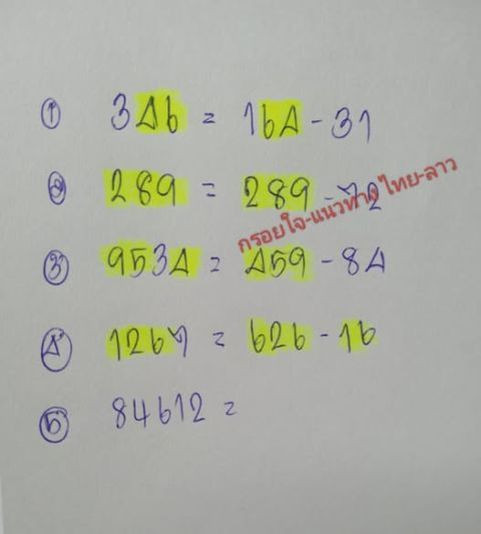 ① 346 = 164 - 31
② 289 = 289 - 72
กรอยใจ-แนวทาง ไทย-ลาว
③ 9534 = 459 - 84
④ 1267 = 626 - 16
⑤ 84612 =